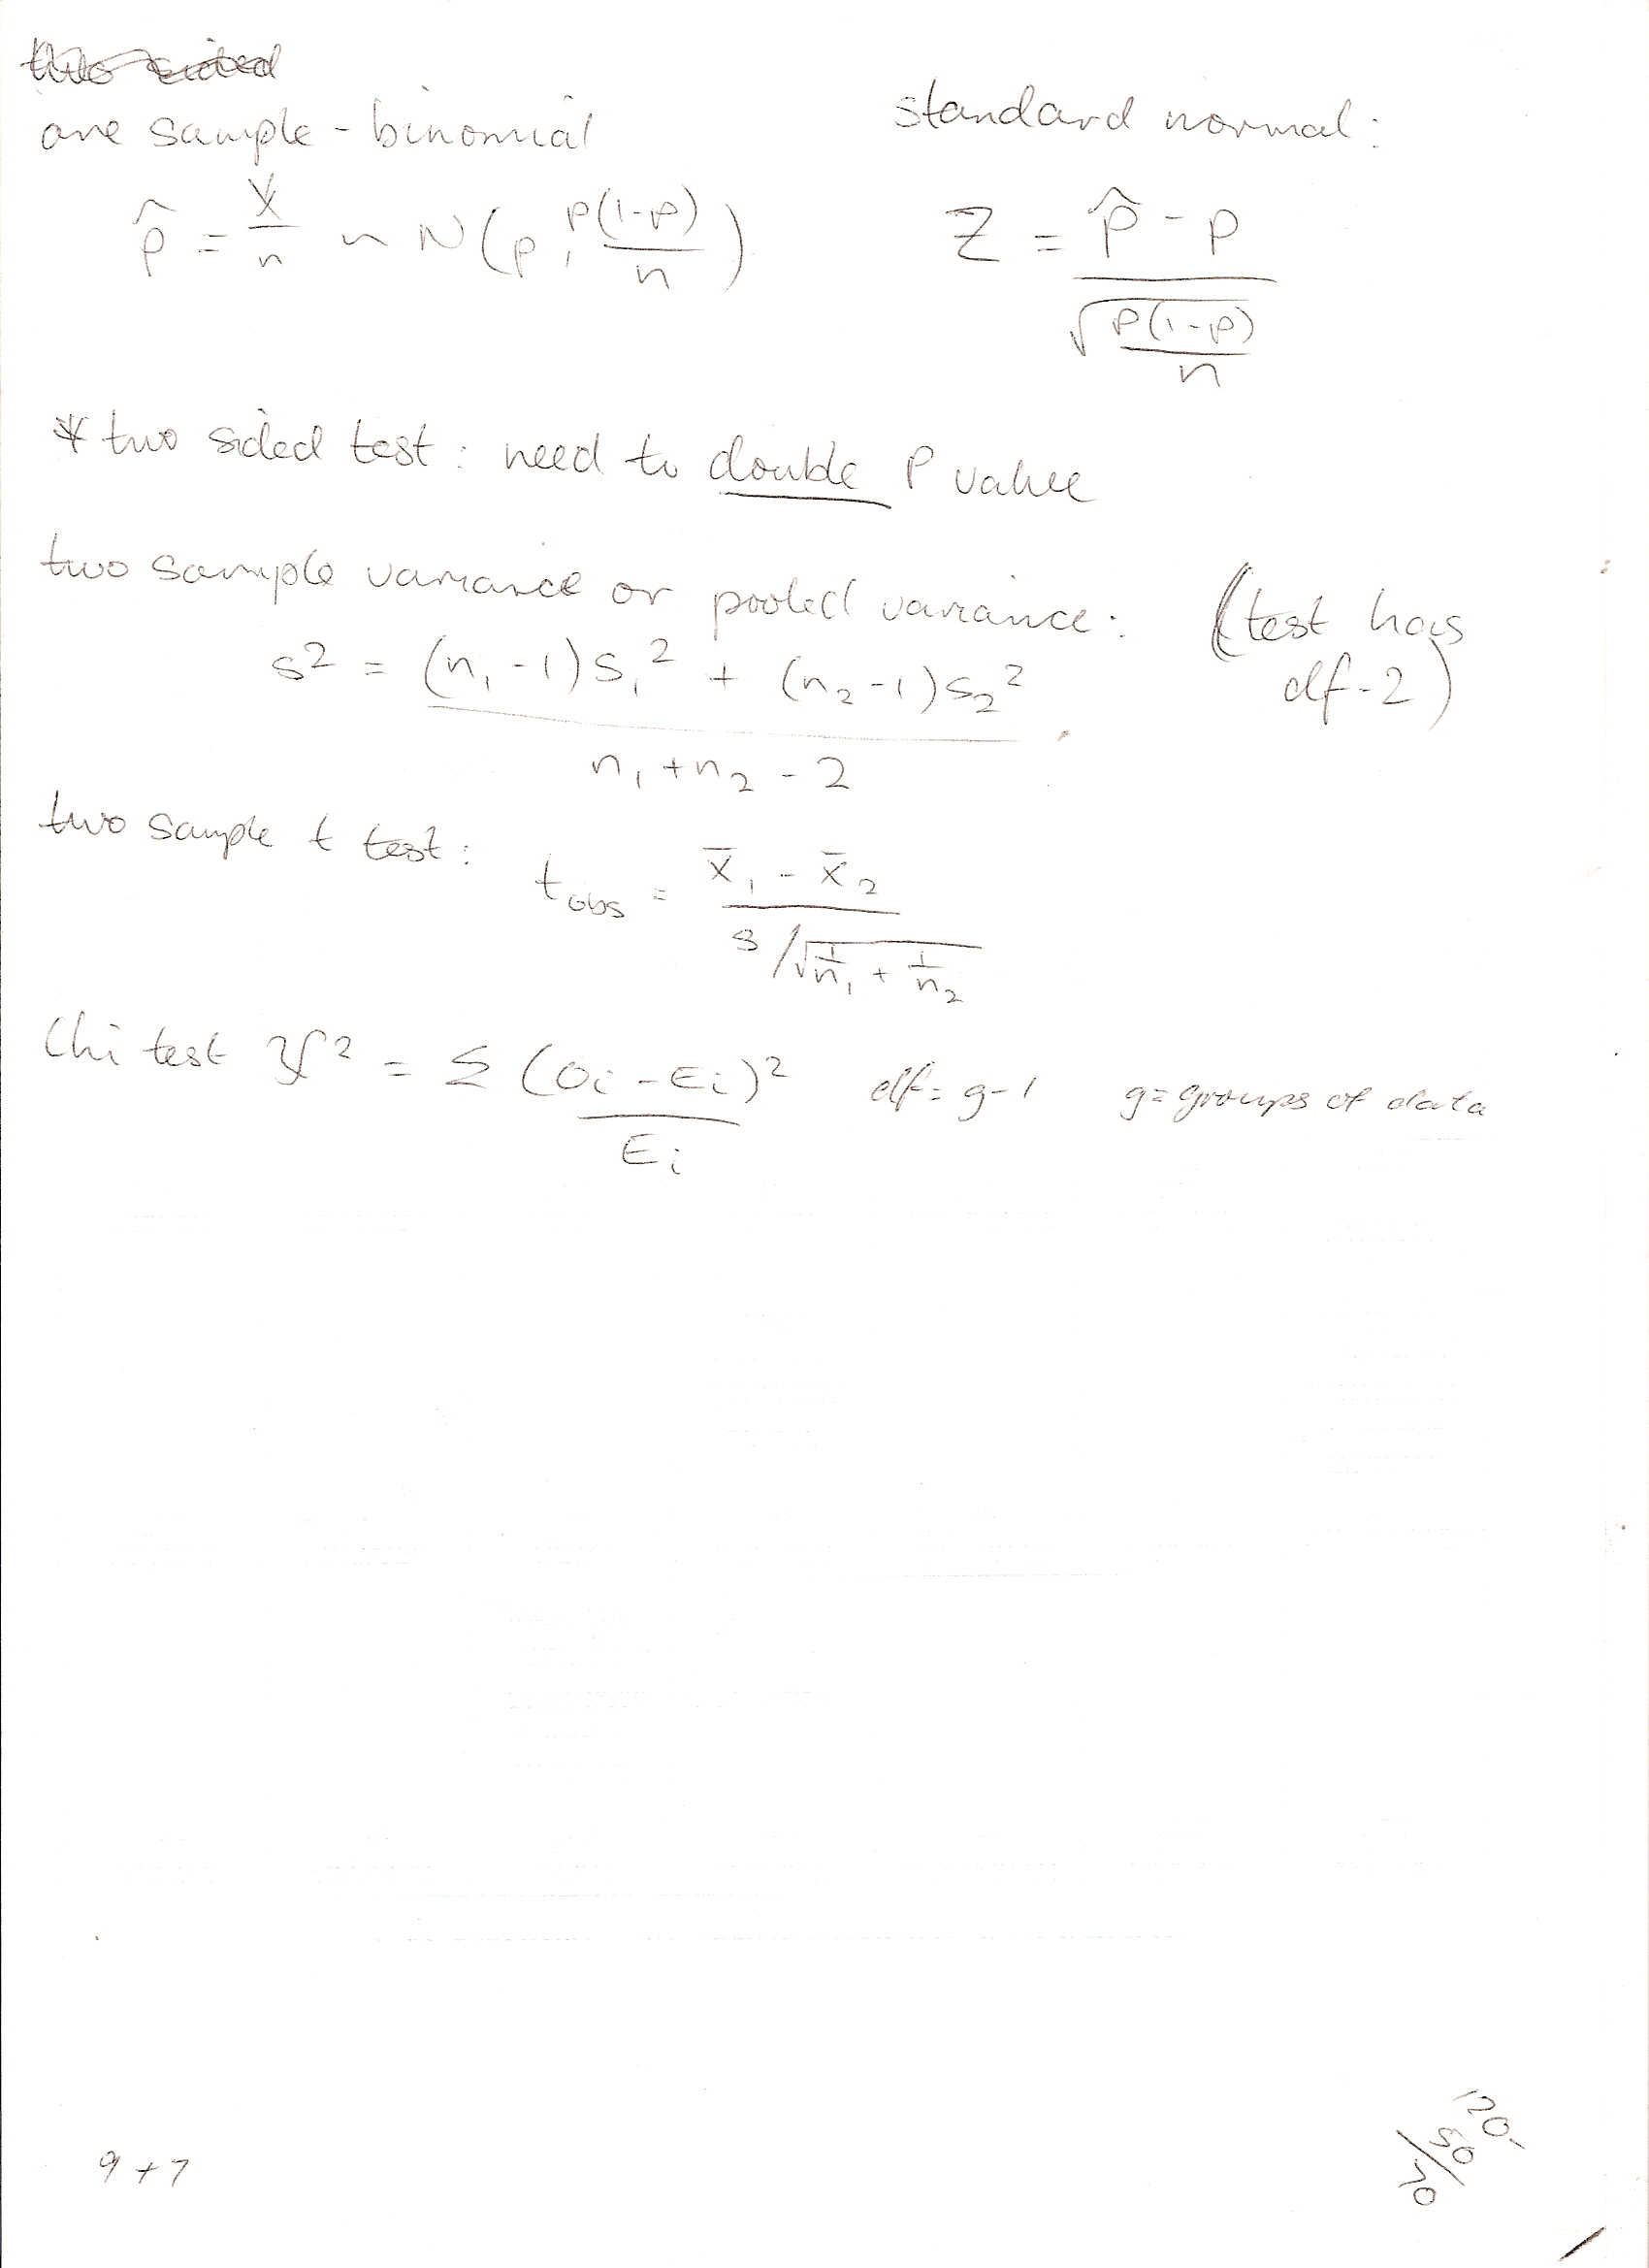 two sided
one sample - binomial
standard normal:
p̂ = X/n ~ N(p, p(1-p)/n)
Z = (p̂ - p) / √(p(1-p)/n)
* two sided test: need to double P value
two sample variance or pooled variance: (test has df-2)
s² = ((n₁-1)s₁² + (n₂-1)s₂²) / (n₁+n₂-2)
two sample t test: t_obs = (x̄₁ - x̄₂) / (s/√(1/n₁ + 1/n₂))
Chi test χ² = Σ (Oi - Ei)² / Ei df = g-1 g = groups of data
9 + 7
120-
50
70